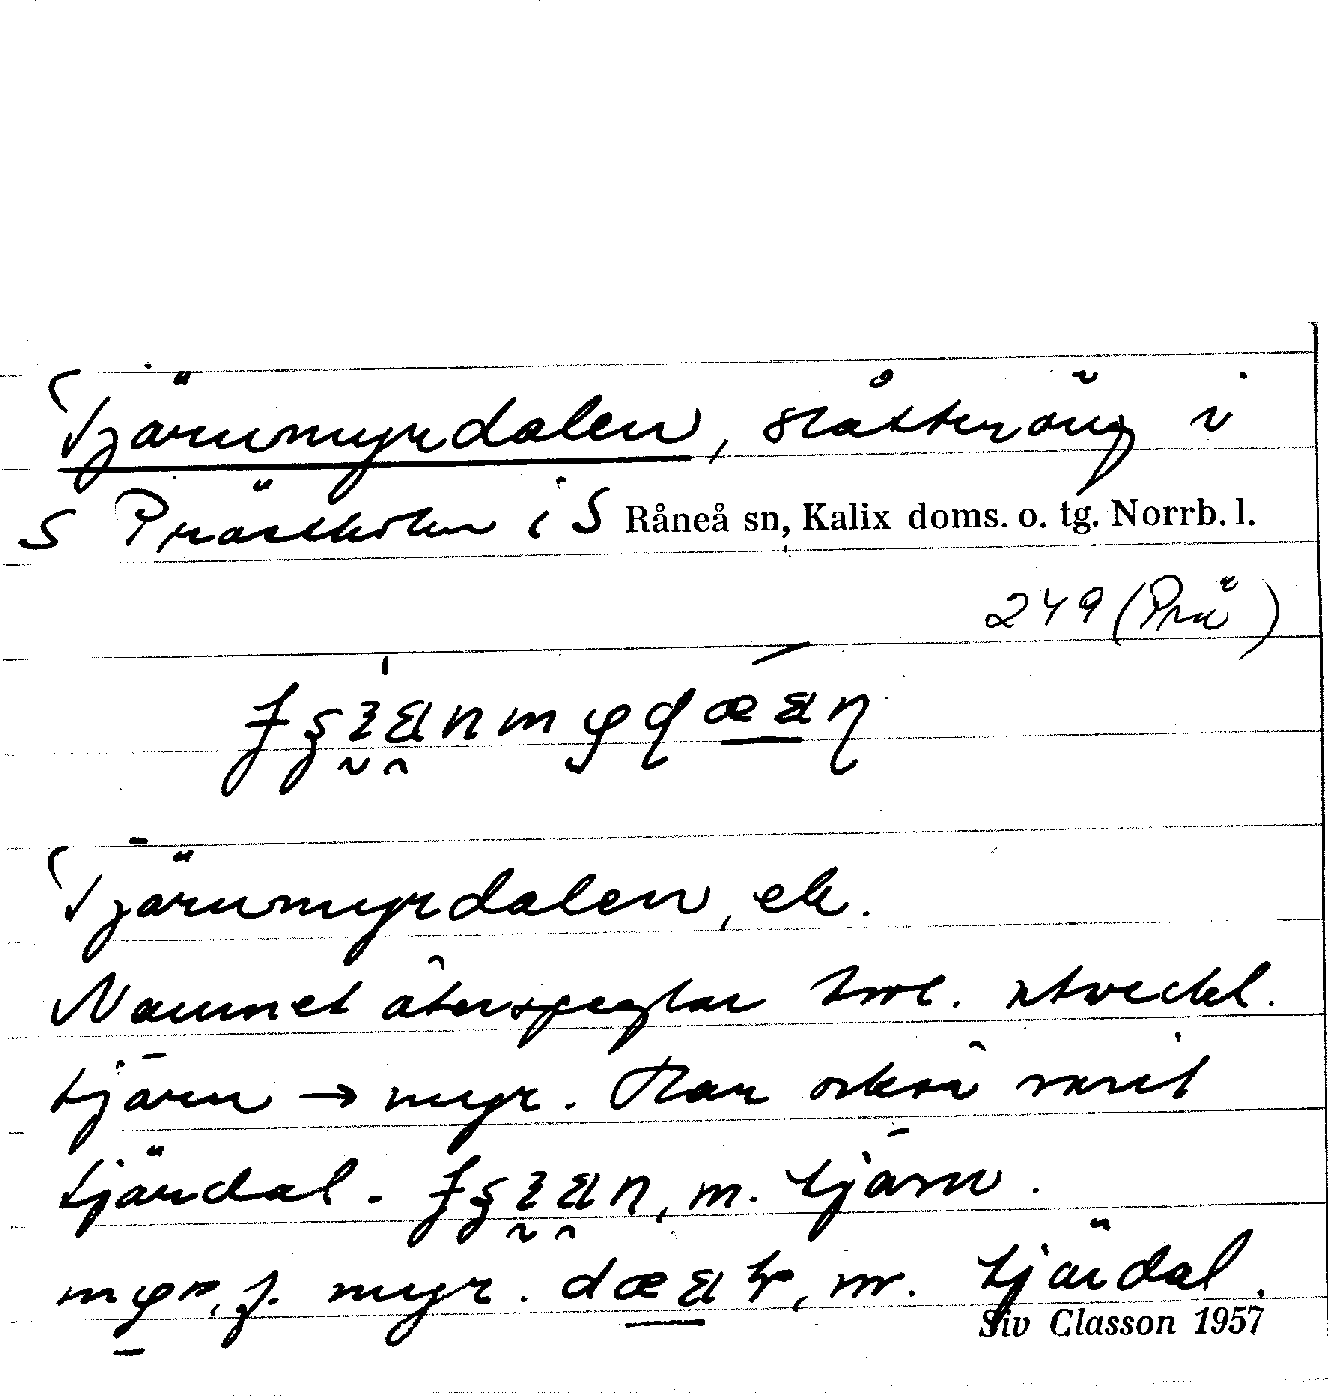 Tjärnmyrdalen, slåtteräng i
S Prästholm i S Råneå sn, Kalix doms. o. tg. Norrb. l.
249 (Prä)
Tjärnmyrdalen, ek.
Namnet återspeglar trol. utveckl.
tjärn → myr. Har också varit
tjärdal. m. tjärn.
f. myr. m. tjärdal.
Siv Classon 1957